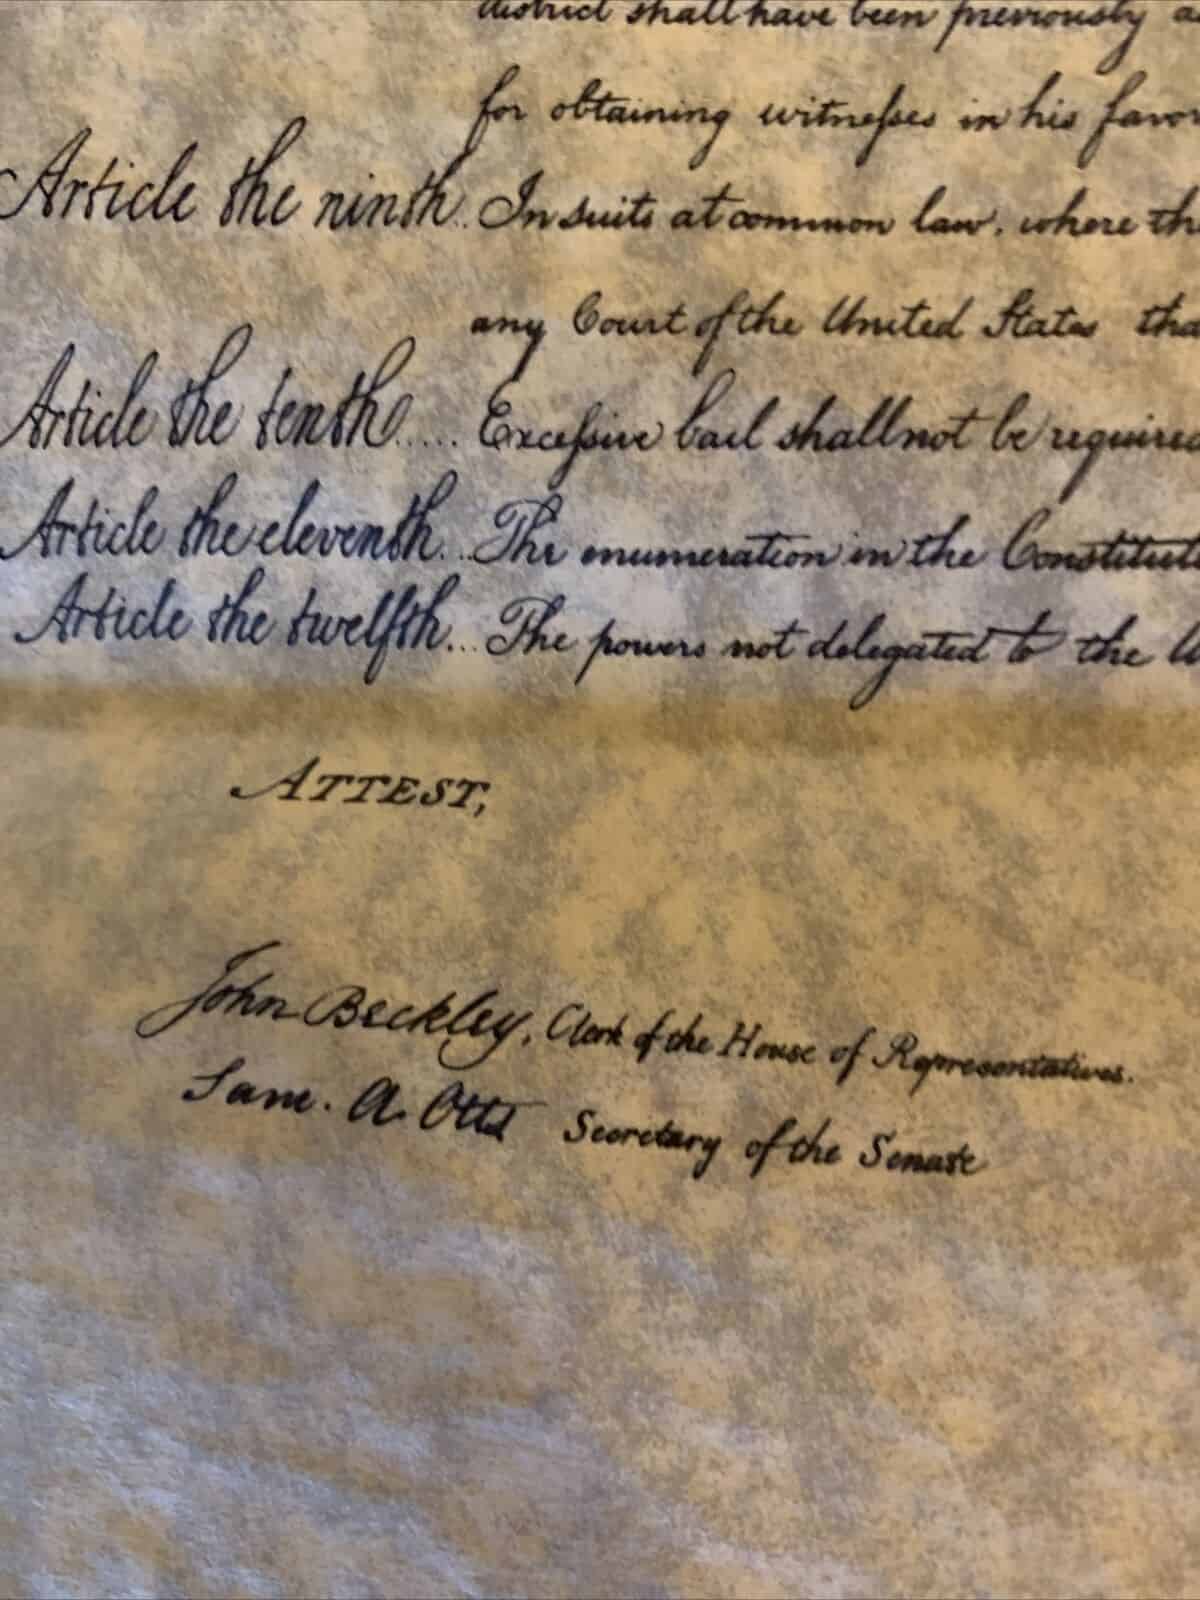 district shall have been previously
for obtaining witnesses in his favor
Article the ninth.. In suits at common law, where the
any Court of the United States
Article the tenth..... Excessive bail shall not be required
Article the eleventh... The enumeration in the Constitut
Article the twelfth... The powers not delegated to the U
ATTEST,
John Beckley, Clerk of the House of Representatives.
Sam. A. Otis Secretary of the Senate